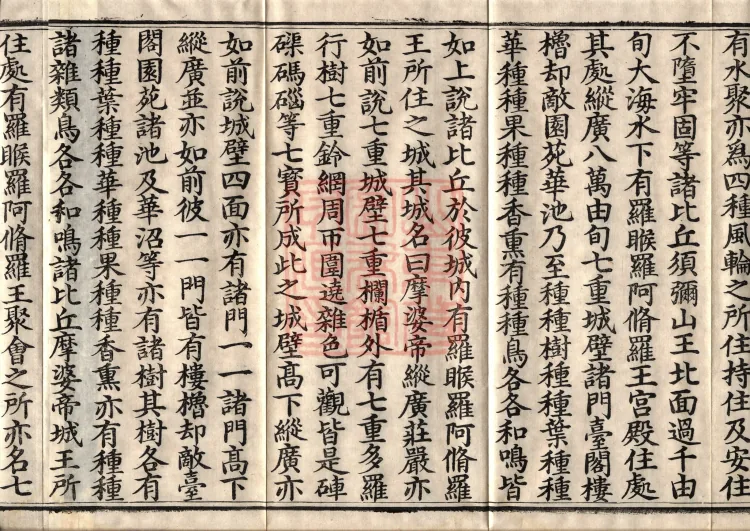 有水聚亦為四種風輪之所住持住及安住
不墮牢固等諸比丘須彌山王北面過千由
旬大海水下有羅睺羅阿脩羅王宮殿住處
其處縱廣八萬由旬七重城壁諸門臺閣樓
櫓却敵園苑華池乃至種種樹種種葉種種
華種種果種種香熏有種種鳥各各和鳴皆
如上說諸比丘於彼城內有羅睺羅阿脩羅
王所住之城其城名曰摩婆帝縱廣莊嚴亦
如前說七重城壁七重欄楯外有七重多羅
行樹七重鈴網周帀圍遶雜色可觀皆是硨
磲碼碯等七寶所成此之城壁髙下縱廣亦
如前說城壁四面亦有諸門一一諸門髙下
縱廣並亦如前彼一一門皆有樓櫓却敵臺
閣園苑諸池及華沼等亦有諸樹其樹各有
種種葉種種華種種果種種香熏亦有種種
諸雜類鳥各各和鳴諸比丘摩婆帝城王所
住處有羅睺羅阿脩羅王聚會之所亦名七